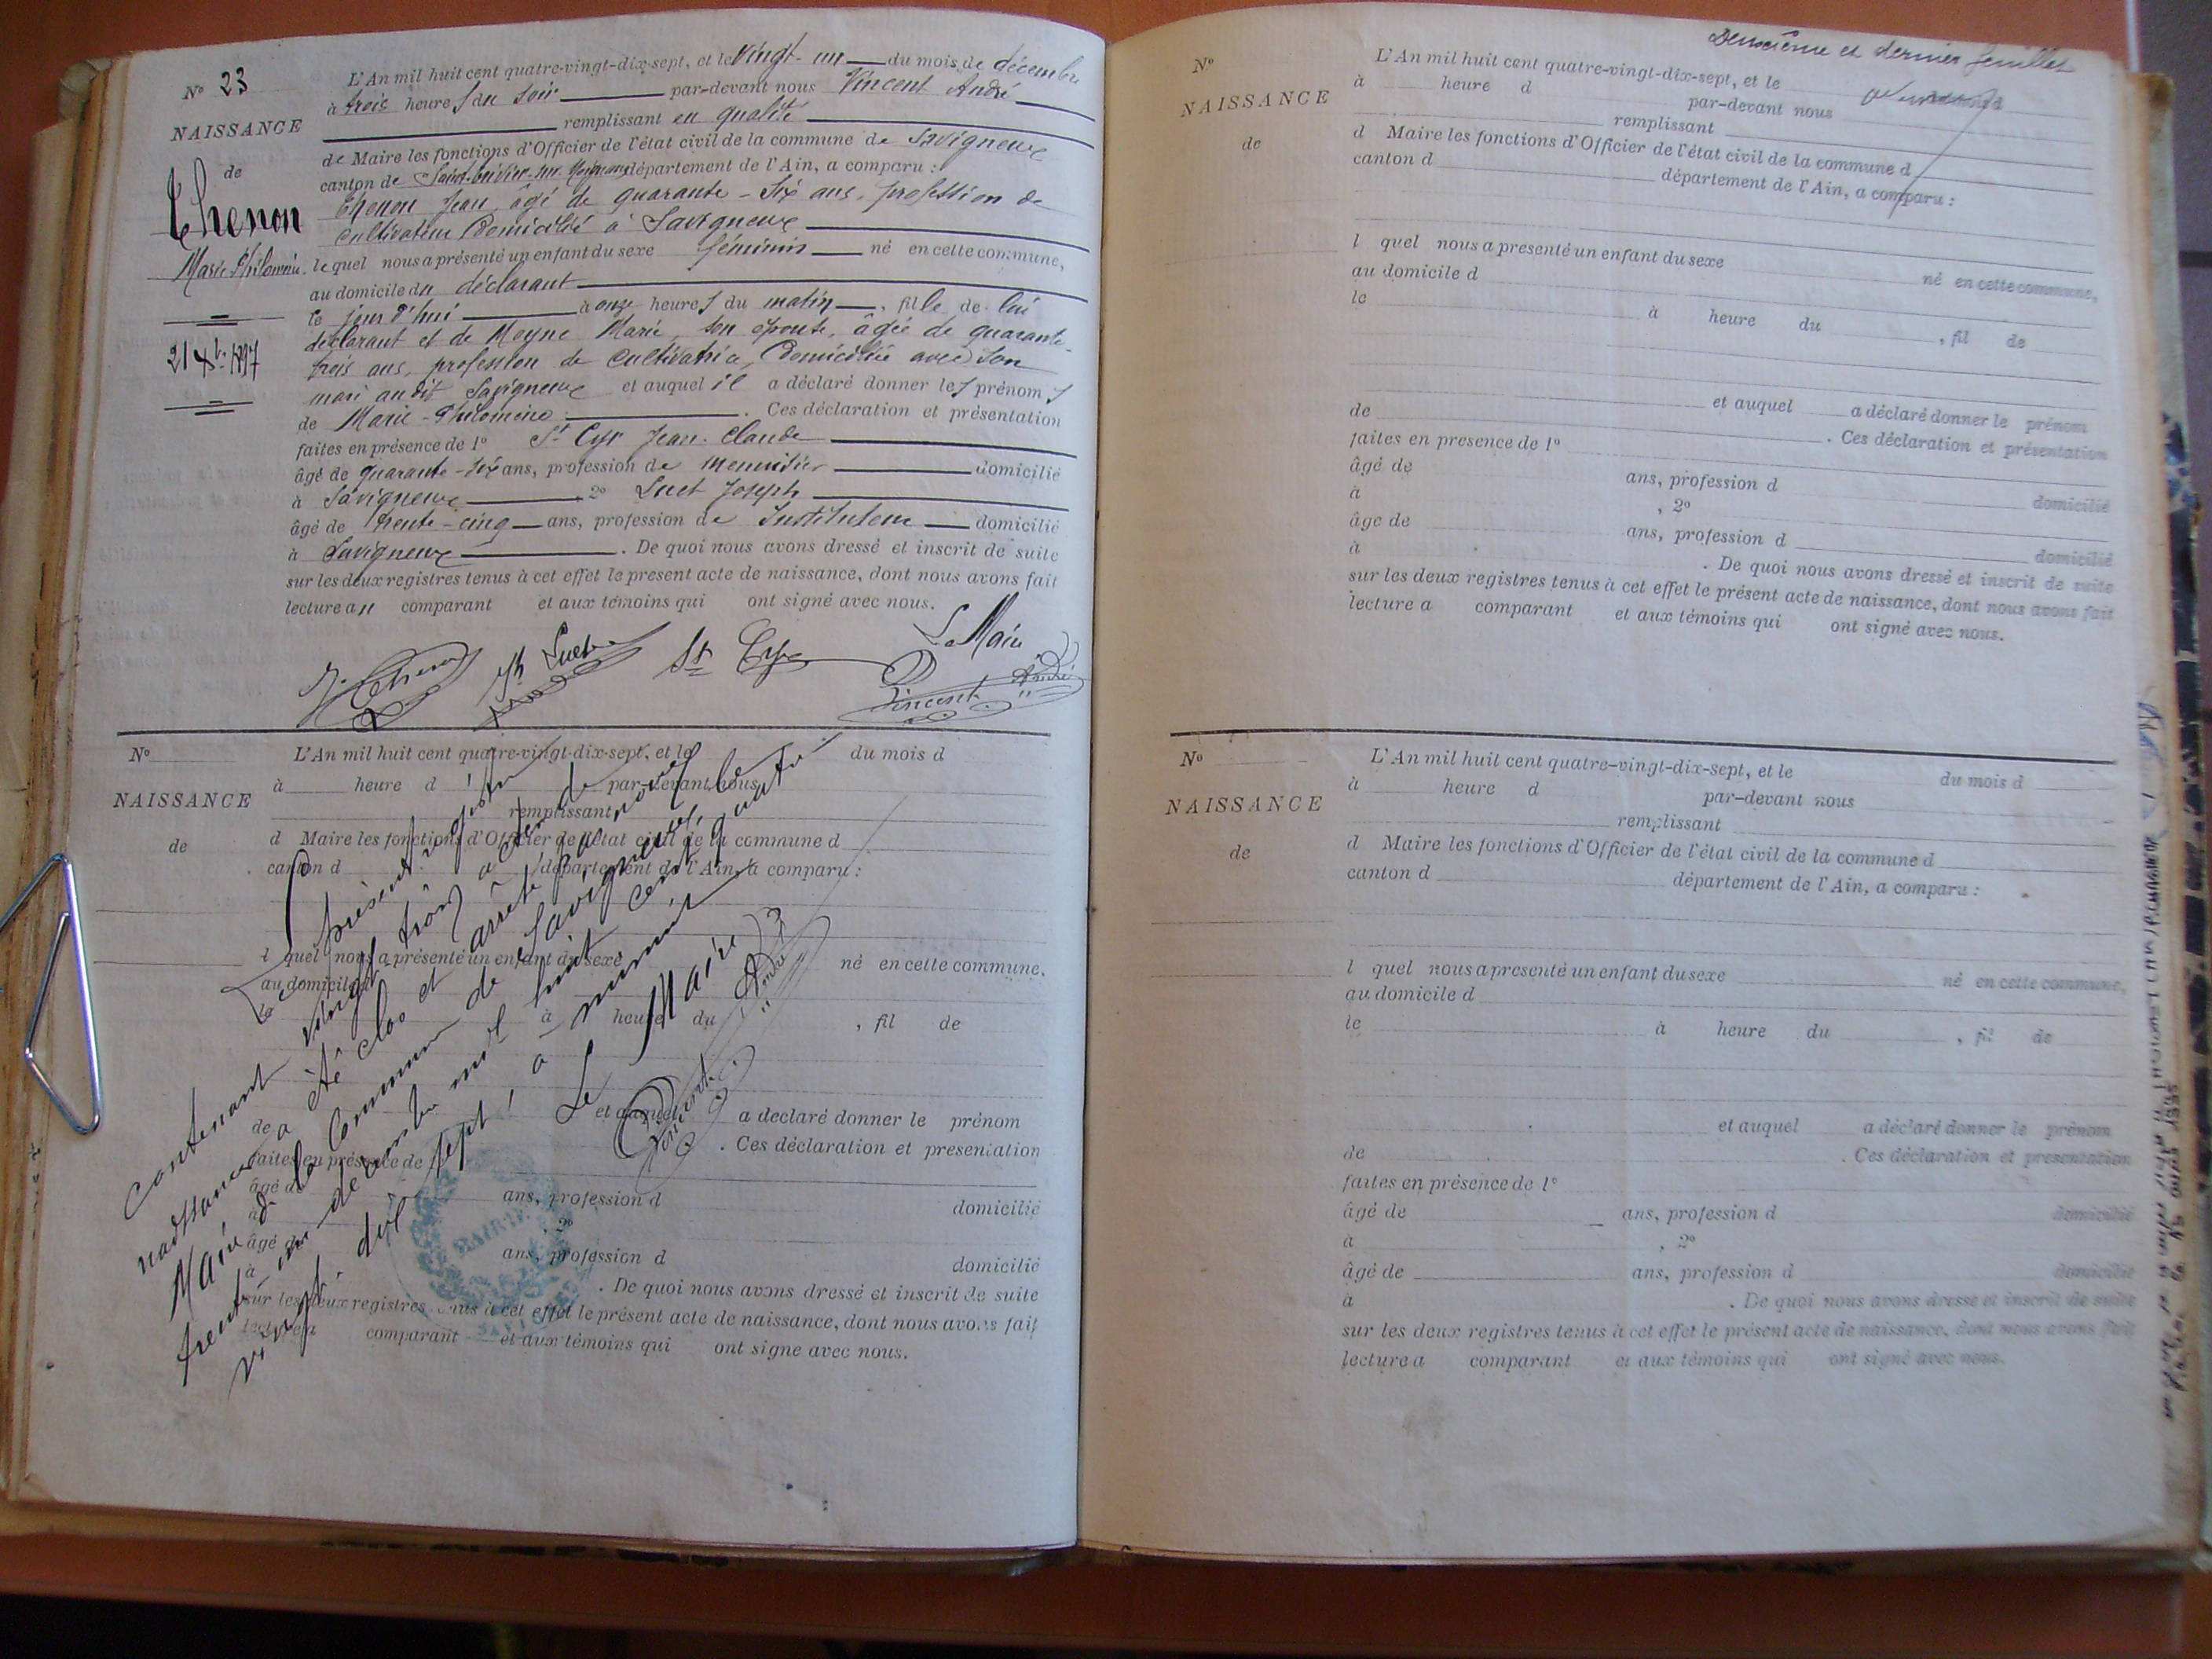 N° 23
NAISSANCE
de
Thenon
Marie Philomène
21 Xbre 1897
L'An mil huit cent quatre-vingt-dix-sept, et le vingt-un du mois de décembre
à trois heures du soir par-devant nous Vincent André
remplissant en qualité
de Maire les fonctions d'Officier de l'état civil de la commune de Savigneux
canton de Saint-Trivier-sur-Moignans département de l'Ain, a comparu :
Thenon Jean, âgé de quarante-six ans, profession de
cultivateur domicilié à Savigneux
lequel nous a présenté un enfant du sexe féminin né en cette commune,
au domicile du déclarant
le jour d'hui à onze heures du matin, fille de lui
déclarant et de Moyne Marie, son épouse, âgée de quarante-
trois ans, profession de cultivatrice, domiciliée avec son
mari audit Savigneux et auquel il a déclaré donner les prénoms
de Marie-Philomène. Ces déclaration et présentation
faites en présence de 1° St Cyr Jean-Claude
âgé de quarante-six ans, profession de menuisier domicilié
à Savigneux, 2° Luet Joseph
âgé de trente-cinq ans, profession de Instituteur domicilié
à Savigneux. De quoi nous avons dressé et inscrit de suite
sur les deux registres tenus à cet effet le présent acte de naissance, dont nous avons fait
lecture au comparant et aux témoins qui ont signé avec nous.
J. Thenon Jh Luet St Cyr Le Maire
Vincent André
N°
NAISSANCE
de
L'An mil huit cent quatre-vingt-dix-sept, et le du mois d
à heure d par-devant nous
remplissant
d Maire les fonctions d'Officier de l'état civil de la commune d
canton d département de l'Ain, a comparu :
l quel nous a présenté un enfant du sexe né en cette commune,
au domicile d
le à heure du , fil de
et auquel a déclaré donner le prénom
de . Ces déclaration et présentation
faites en présence de
âgé de ans, profession d domicilié
à , 2°
âgé de ans, profession d domicilié
à . De quoi nous avons dressé et inscrit de suite
sur les deux registres tenus à cet effet le présent acte de naissance, dont nous avons fait
lecture a comparant et aux témoins qui ont signé avec nous.
Le présent registre
contenant vingt trois actes de
naissances a été clos et arrêté par nous
Maire de la Commune de Savigneux, le
trente un décembre mil huit cent quatre
vingt-dix sept, à minuit
Le Maire
Vincent André
MAIRIE
Deuxième et dernier feuillet
N°
NAISSANCE
de
L'An mil huit cent quatre-vingt-dix-sept, et le
à heure d par-devant nous
remplissant
d Maire les fonctions d'Officier de l'état civil de la commune d
canton d département de l'Ain, a comparu :
l quel nous a présenté un enfant du sexe né en cette commune,
au domicile d
le à heure du , fil de
et auquel a déclaré donner le prénom
de . Ces déclaration et présentation
faites en présence de 1°
âgé de ans, profession d domicilié
à , 2°
âgé de ans, profession d domicilié
à . De quoi nous avons dressé et inscrit de suite
sur les deux registres tenus à cet effet le présent acte de naissance, dont nous avons fait
lecture a comparant et aux témoins qui ont signé avec nous.
N°
NAISSANCE
de
L'An mil huit cent quatre-vingt-dix-sept, et le du mois d
à heure d par-devant nous
remplissant
d Maire les fonctions d'Officier de l'état civil de la commune d
canton d département de l'Ain, a comparu :
l quel nous a présenté un enfant du sexe né en cette commune,
au domicile d
le à heure du , fil de
et auquel a déclaré donner le prénom
de . Ces déclaration et présentation
faites en présence de 1°
âgé de ans, profession d domicilié
à , 2°
âgé de ans, profession d domicilié
à . De quoi nous avons dressé et inscrit de suite
sur les deux registres tenus à cet effet le présent acte de naissance, dont nous avons fait
lecture a comparant et aux témoins qui ont signé avec nous.